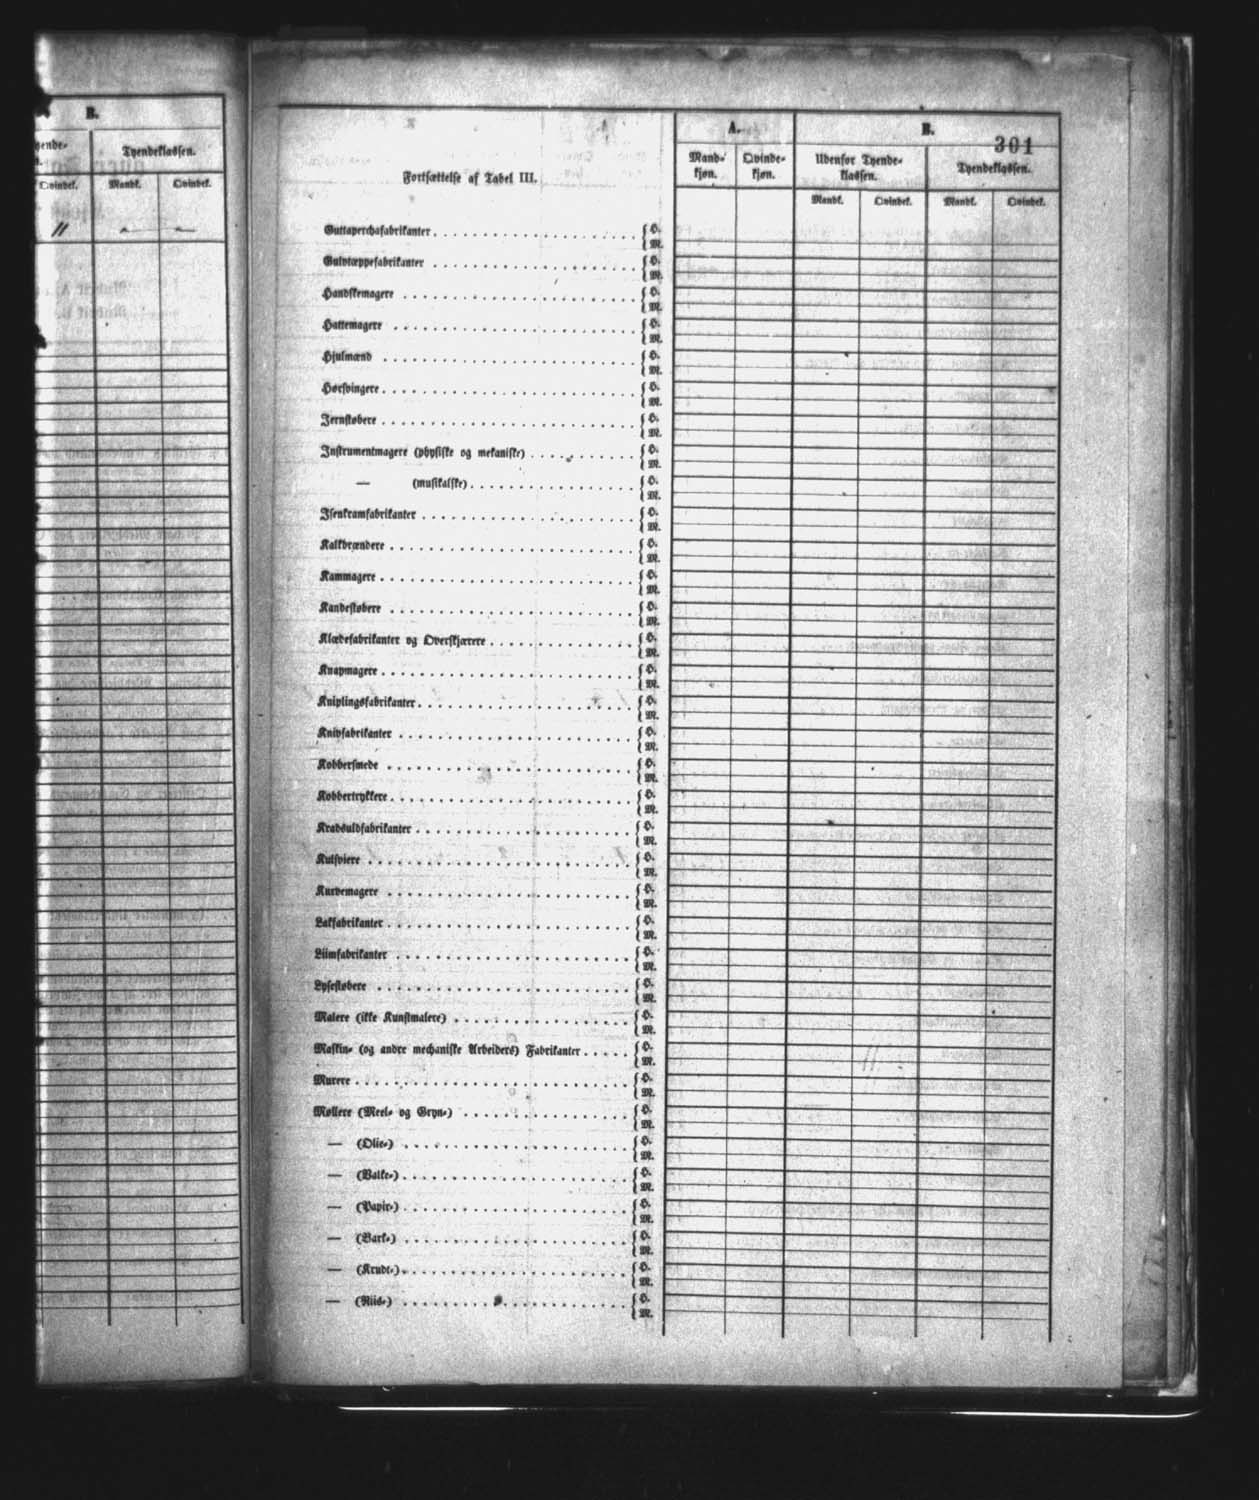 B.
Tyendeklassen.
Qvindek. Mandk. Qvindek.
A. B.
301
Mandkjøn. Qvindekjøn. Udenfor Tyendeklassen. Tyendeklassen.
Fortsættelse af Tabel III.
Mandk. Qvindek. Mandk. Qvindek.
Guttaperchafabrikanter { H.
{ M.
Gulvtæppefabrikanter { H.
{ M.
Handskemagere { H.
{ M.
Hattemagere { H.
{ M.
Hjulmænd { H.
{ M.
Hørsvingere { H.
{ M.
Jernstøbere { H.
{ M.
Instrumentmagere (physiske og mekaniske) { H.
{ M.
— (musikalske) { H.
{ M.
Isenkramfabrikanter { H.
{ M.
Kalkbrændere { H.
{ M.
Kammagere { H.
{ M.
Kandestøbere { H.
{ M.
Klædefabrikanter og Overskjærere { H.
{ M.
Knapmagere { H.
{ M.
Kniplingsfabrikanter { H.
{ M.
Knivfabrikanter { H.
{ M.
Kobbersmede { H.
{ M.
Kobbertrykkere { H.
{ M.
Kradsuldfabrikanter { H.
{ M.
Kulsviere { H.
{ M.
Kurvemagere { H.
{ M.
Lakfabrikanter { H.
{ M.
Liimfabrikanter { H.
{ M.
Lysestøbere { H.
{ M.
Malere (ikke Kunstmalere) { H.
{ M.
Maskin- (og andre mechaniske Arbeiders) Fabrikanter { H.
{ M.
Murere { H.
{ M.
Møllere (Meel- og Gryn-) { H.
{ M.
— (Olie-) { H.
{ M.
— (Valke-) { H.
{ M.
— (Papir-) { H.
{ M.
— (Bark-) { H.
{ M.
— (Krudt-) { H.
{ M.
— (Riis-) { H.
{ M.